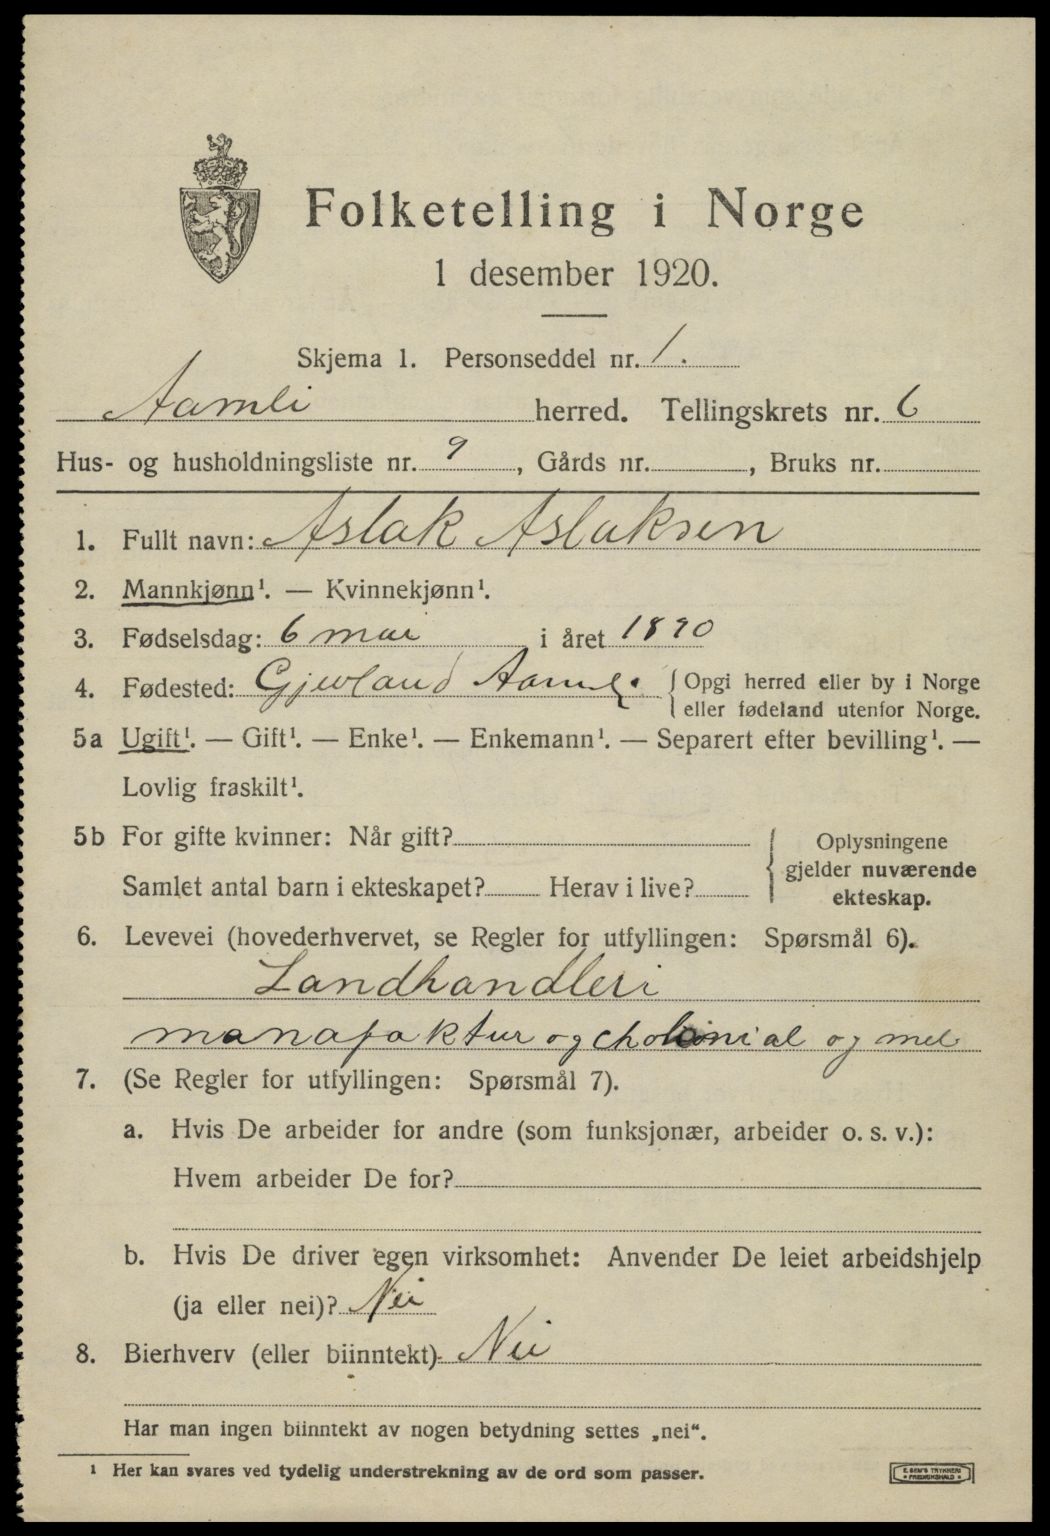 Folketelling i Norge
1 desember 1920.
Skjema 1. Personseddel nr. 1.
Aamli herred. Tellingskrets nr. 6
Hus- og husholdningsliste nr. 9, Gårds nr. , Bruks nr.
1. Fullt navn: Aslak Aslaksen
2. Mannkjønn¹. — Kvinnekjønn¹.
3. Fødselsdag: 6 mai i året 1890
4. Fødested: Aamli { Opgi herred eller by i Norge
eller fødeland utenfor Norge.
5a Ugift¹. — Gift¹. — Enke¹. — Enkemann¹. — Separert efter bevilling¹. —
Lovlig fraskilt¹.
5b For gifte kvinner: Når gift?
Samlet antal barn i ekteskapet? Herav i live?
{ Oplysningene
gjelder nuværende
ekteskap.
6. Levevei (hovederhvervet, se Regler for utfyllingen: Spørsmål 6).
Landhandleri
manafaktur og cholonial og mel
7. (Se Regler for utfyllingen: Spørsmål 7).
a. Hvis De arbeider for andre (som funksjonær, arbeider o. s. v.):
Hvem arbeider De for?
b. Hvis De driver egen virksomhet: Anvender De leiet arbeidshjelp
(ja eller nei)? Nei
8. Bierhverv (eller biinntekt) Nei
Har man ingen biinntekt av nogen betydning settes „nei“.
¹ Her kan svares ved tydelig understrekning av de ord som passer.
E. SEM'S TRYKKERI
FREDRIKSHALD